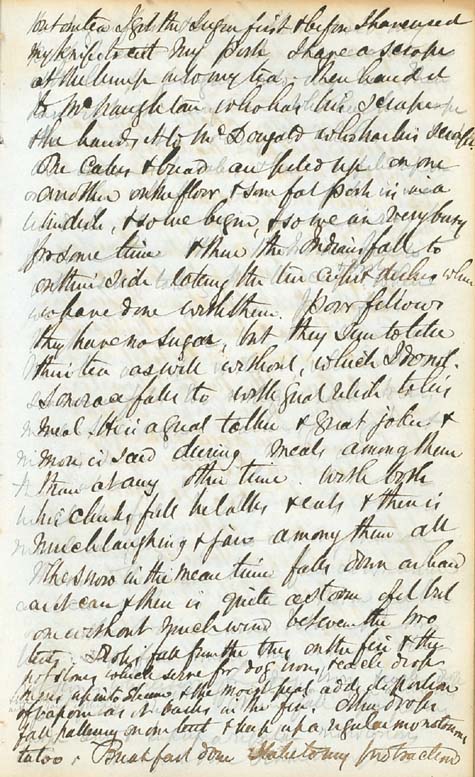 our own tea I get the sugar first & before I have used
my knife to cut my pork I have a scrape
at the lump into my tea. Then hand it
to McNaughton who has his scrape
& he hands it to McDougald who has his scrape
The Cakes & bread are piled up on one
another on the floor & some fat pork is in a
tin dish, & so we begin, & so we are very busy
for some time & then the Indians fall to
on their side taking the tin cups & dishes when
we have done with them. Poor fellows
they have no sugar, but they seem to like
their tea as well without, which I do not.
falls to with great relish to his
meal. He is a great talker & great joker &
more is said during meals among them
than at any other time. With both
his cheeks full he talks & eats & there is
much laughing & jaw among them all
The snow in the mean time falls down as hard
as it can & there is quite a storm of it but
without much wind between the two
tents. Drops fall from the trees on the fire & the
hot stones which serve for dog irons & each drop
up into steam & the moist peat adds its portion
of vapour as it in the fire. The drops
fall on the tent & keep up a regular monotonous
tatoo. Breakfast done I take to my protraction